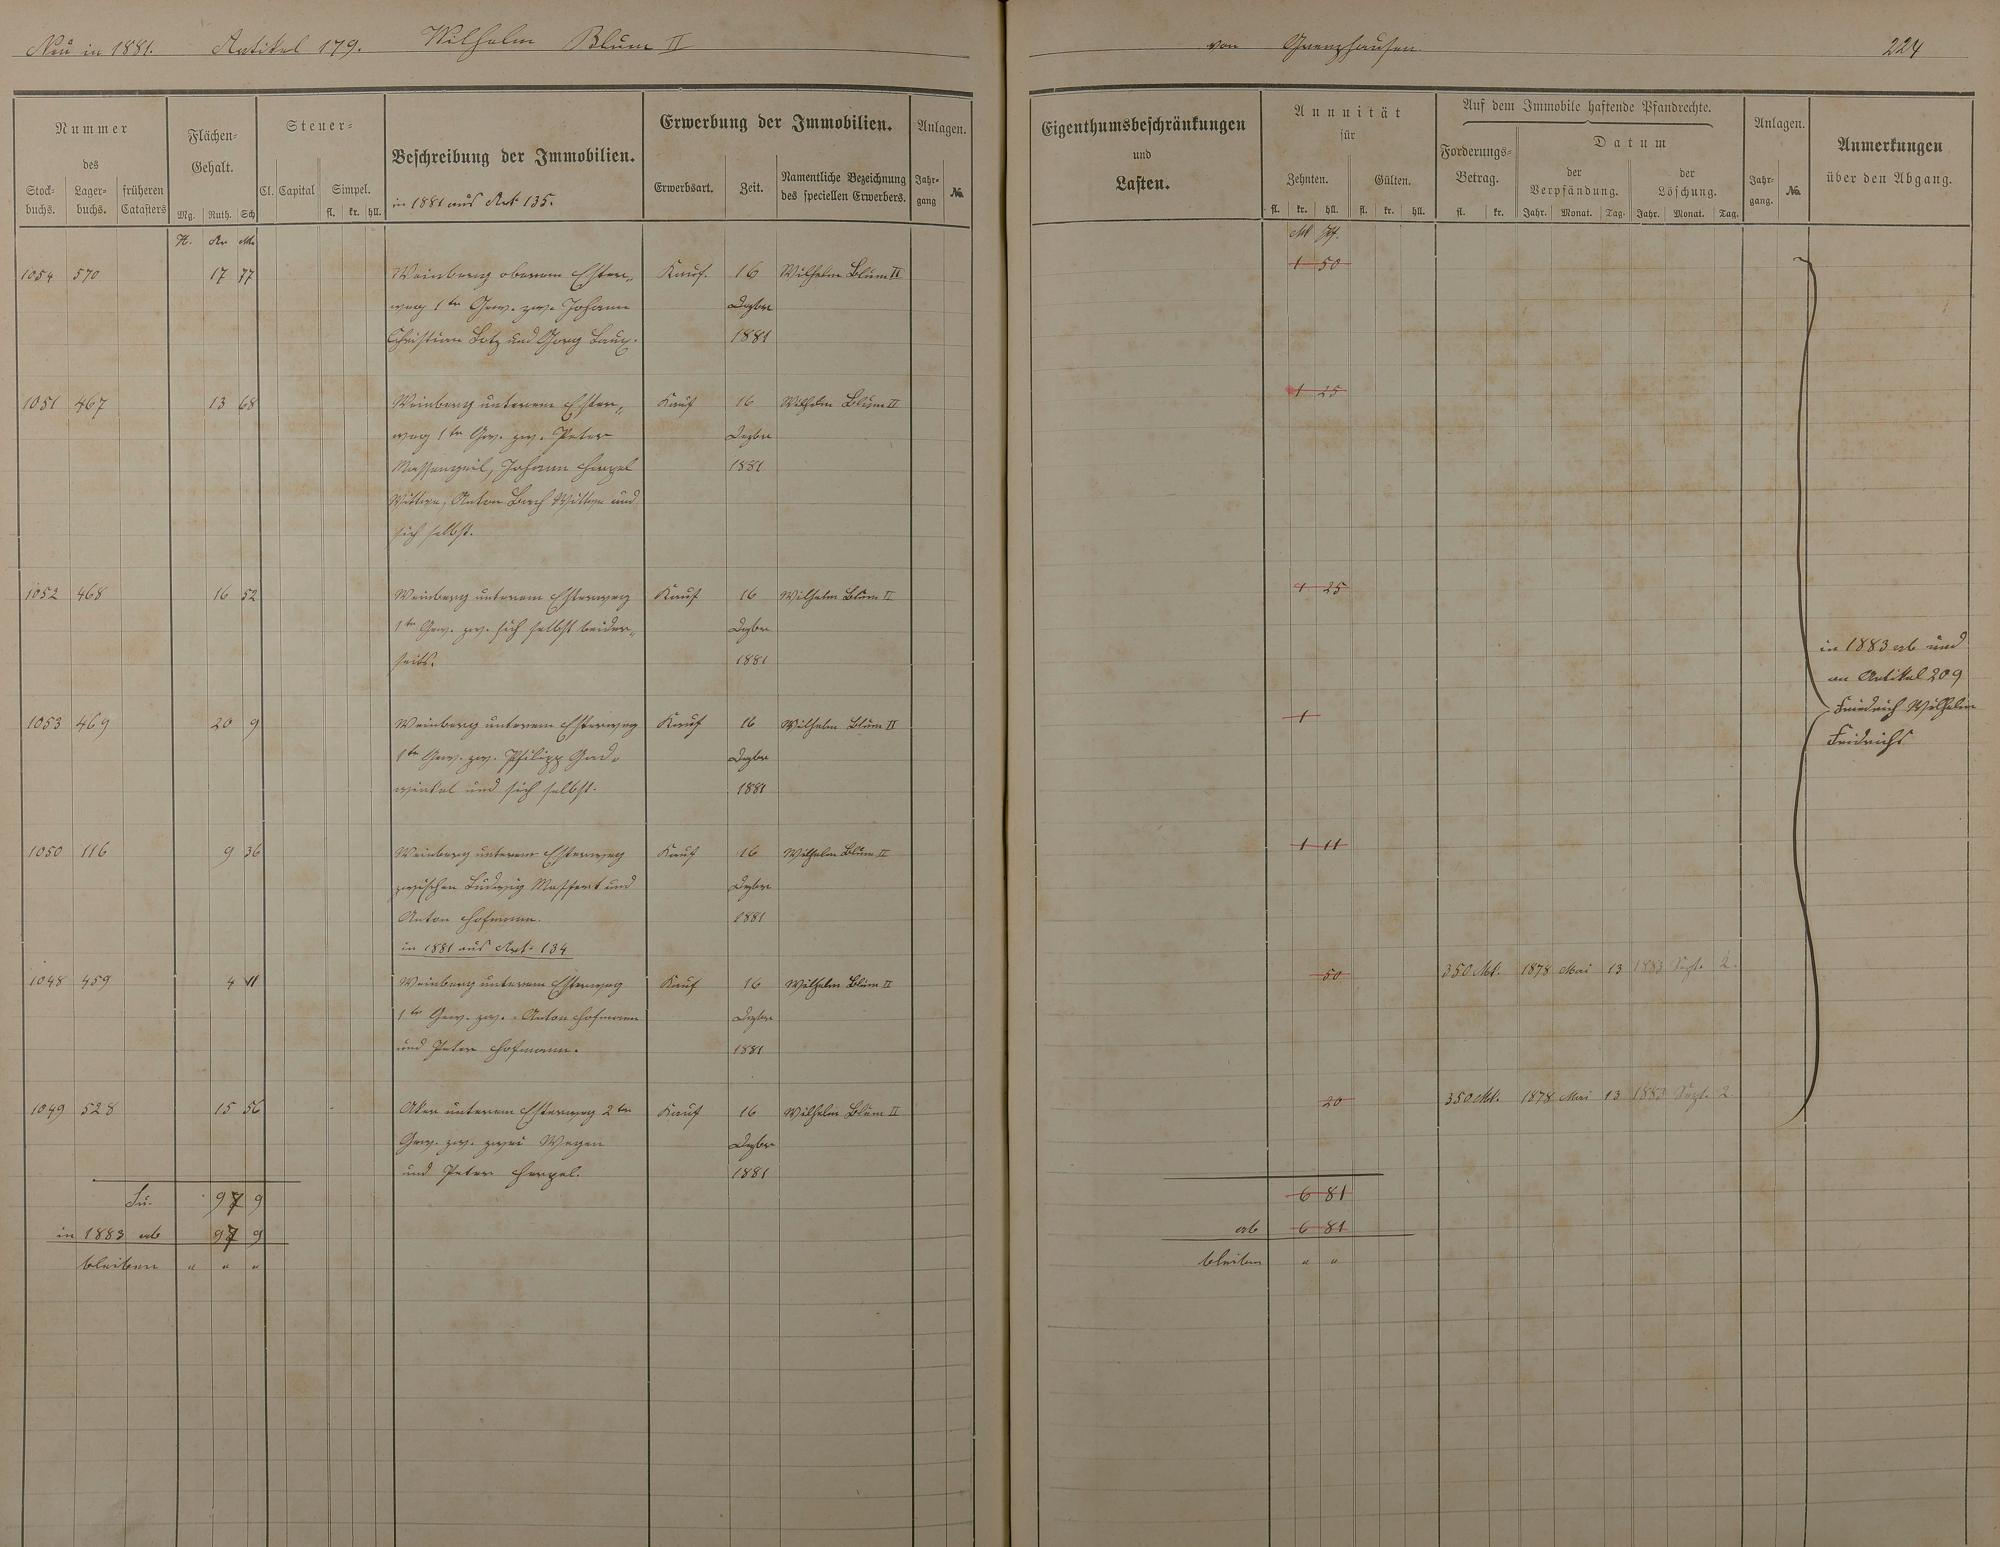 Neu in 1881. Artikel 179. Wilhelm Blum II von Grenzhausen. 224
Nummer
des
Stock-
buchs.
Lager-
buchs.
früheren
Catasters
Flächen-
Gehalt.
Mg. Ruth. Sch
Steuer-
Cl. Capital
Simpel.
fl. kr. hll.
Beschreibung der Immobilien.
in 1881 aus Art 135.
Erwerbung der Immobilien.
Erwerbsart. Zeit.
Namentliche Bezeichnung
des speciellen Erwerbers.
Anlagen.
Jahr-
gang
No.
Eigenthumsbeschränkungen
und
Lasten.
Annuität
für
Zehnten. Gülten.
fl. kr. hll. fl. kr. hll.
Auf dem Immobile haftende Pfandrechte.
Forderungs-
Betrag.
fl. kr.
Datum
der
Verpfändung.
Jahr. Monat. Tag.
der
Löschung.
Jahr. Monat. Tag.
Anlagen.
Jahr-
gang.
No.
Anmerkungen
über den Abgang.
H. Ar Me
M Pf.
1054 570 17 77 Weinberg oberem Ester„ Kauf. 16 Wilhelm Blum II 1 50
weg 1te Gew. zw. Johann Dezbr
Christian und Georg 1881
1051 467 13 68 Weinberg unterem Ester„ Kauf 16 Wilhelm Blum II 1 25
weg 1te Gew. zw. Peter Dezbr
Massengeil, Johann Herpel 1881
Wittwe, Anton Wittwe und
sich selbst.
1052 468 16 52 Weinberg unterem Esterweg Kauf 16 Wilhelm Blum II 1 25
1te Gew. zw. sich selbst beider„ Dezbr
seits. 1881
in 1883 ab und
an Artikel 209
Friedrich Wilhelm
Fridrichs
1053 469 20 9 Weinberg unterem Esterweg Kauf 16 Wilhelm Blum II 1
1te Gew. zw. Philipp Dezbr
und sich selbst. 1881
1050 116 9 36 Weinberg unterem Esterweg Kauf 16 Wilhelm Blum II 1 11
zwischen Ludwig und Dezbr
Anton Hofmann. 1881
in 1881 aus Art. 134
1048 459 4 11 Weinberg unterem Esterweg Kauf 16 Wilhelm Blum II 50 350 Mk. 1878 Mai 13 1883 Sept. 2.
1te Gew. zw. Anton Hofmann Dezbr
und Peter Hofmann. 1881
1049 528 15 56 Aker unterem Esterweg 2te Kauf 16 Wilhelm Blum II 20 350 Mk. 1878 Mai 13 1883 Sept. 2.
Gew. zw. zwei Wegen Dezbr
und Peter Herpel. 1881
Su. 97 9 6 81
in 1883 ab 97 9 ab 6 81
bleiben " " " bleiben " "